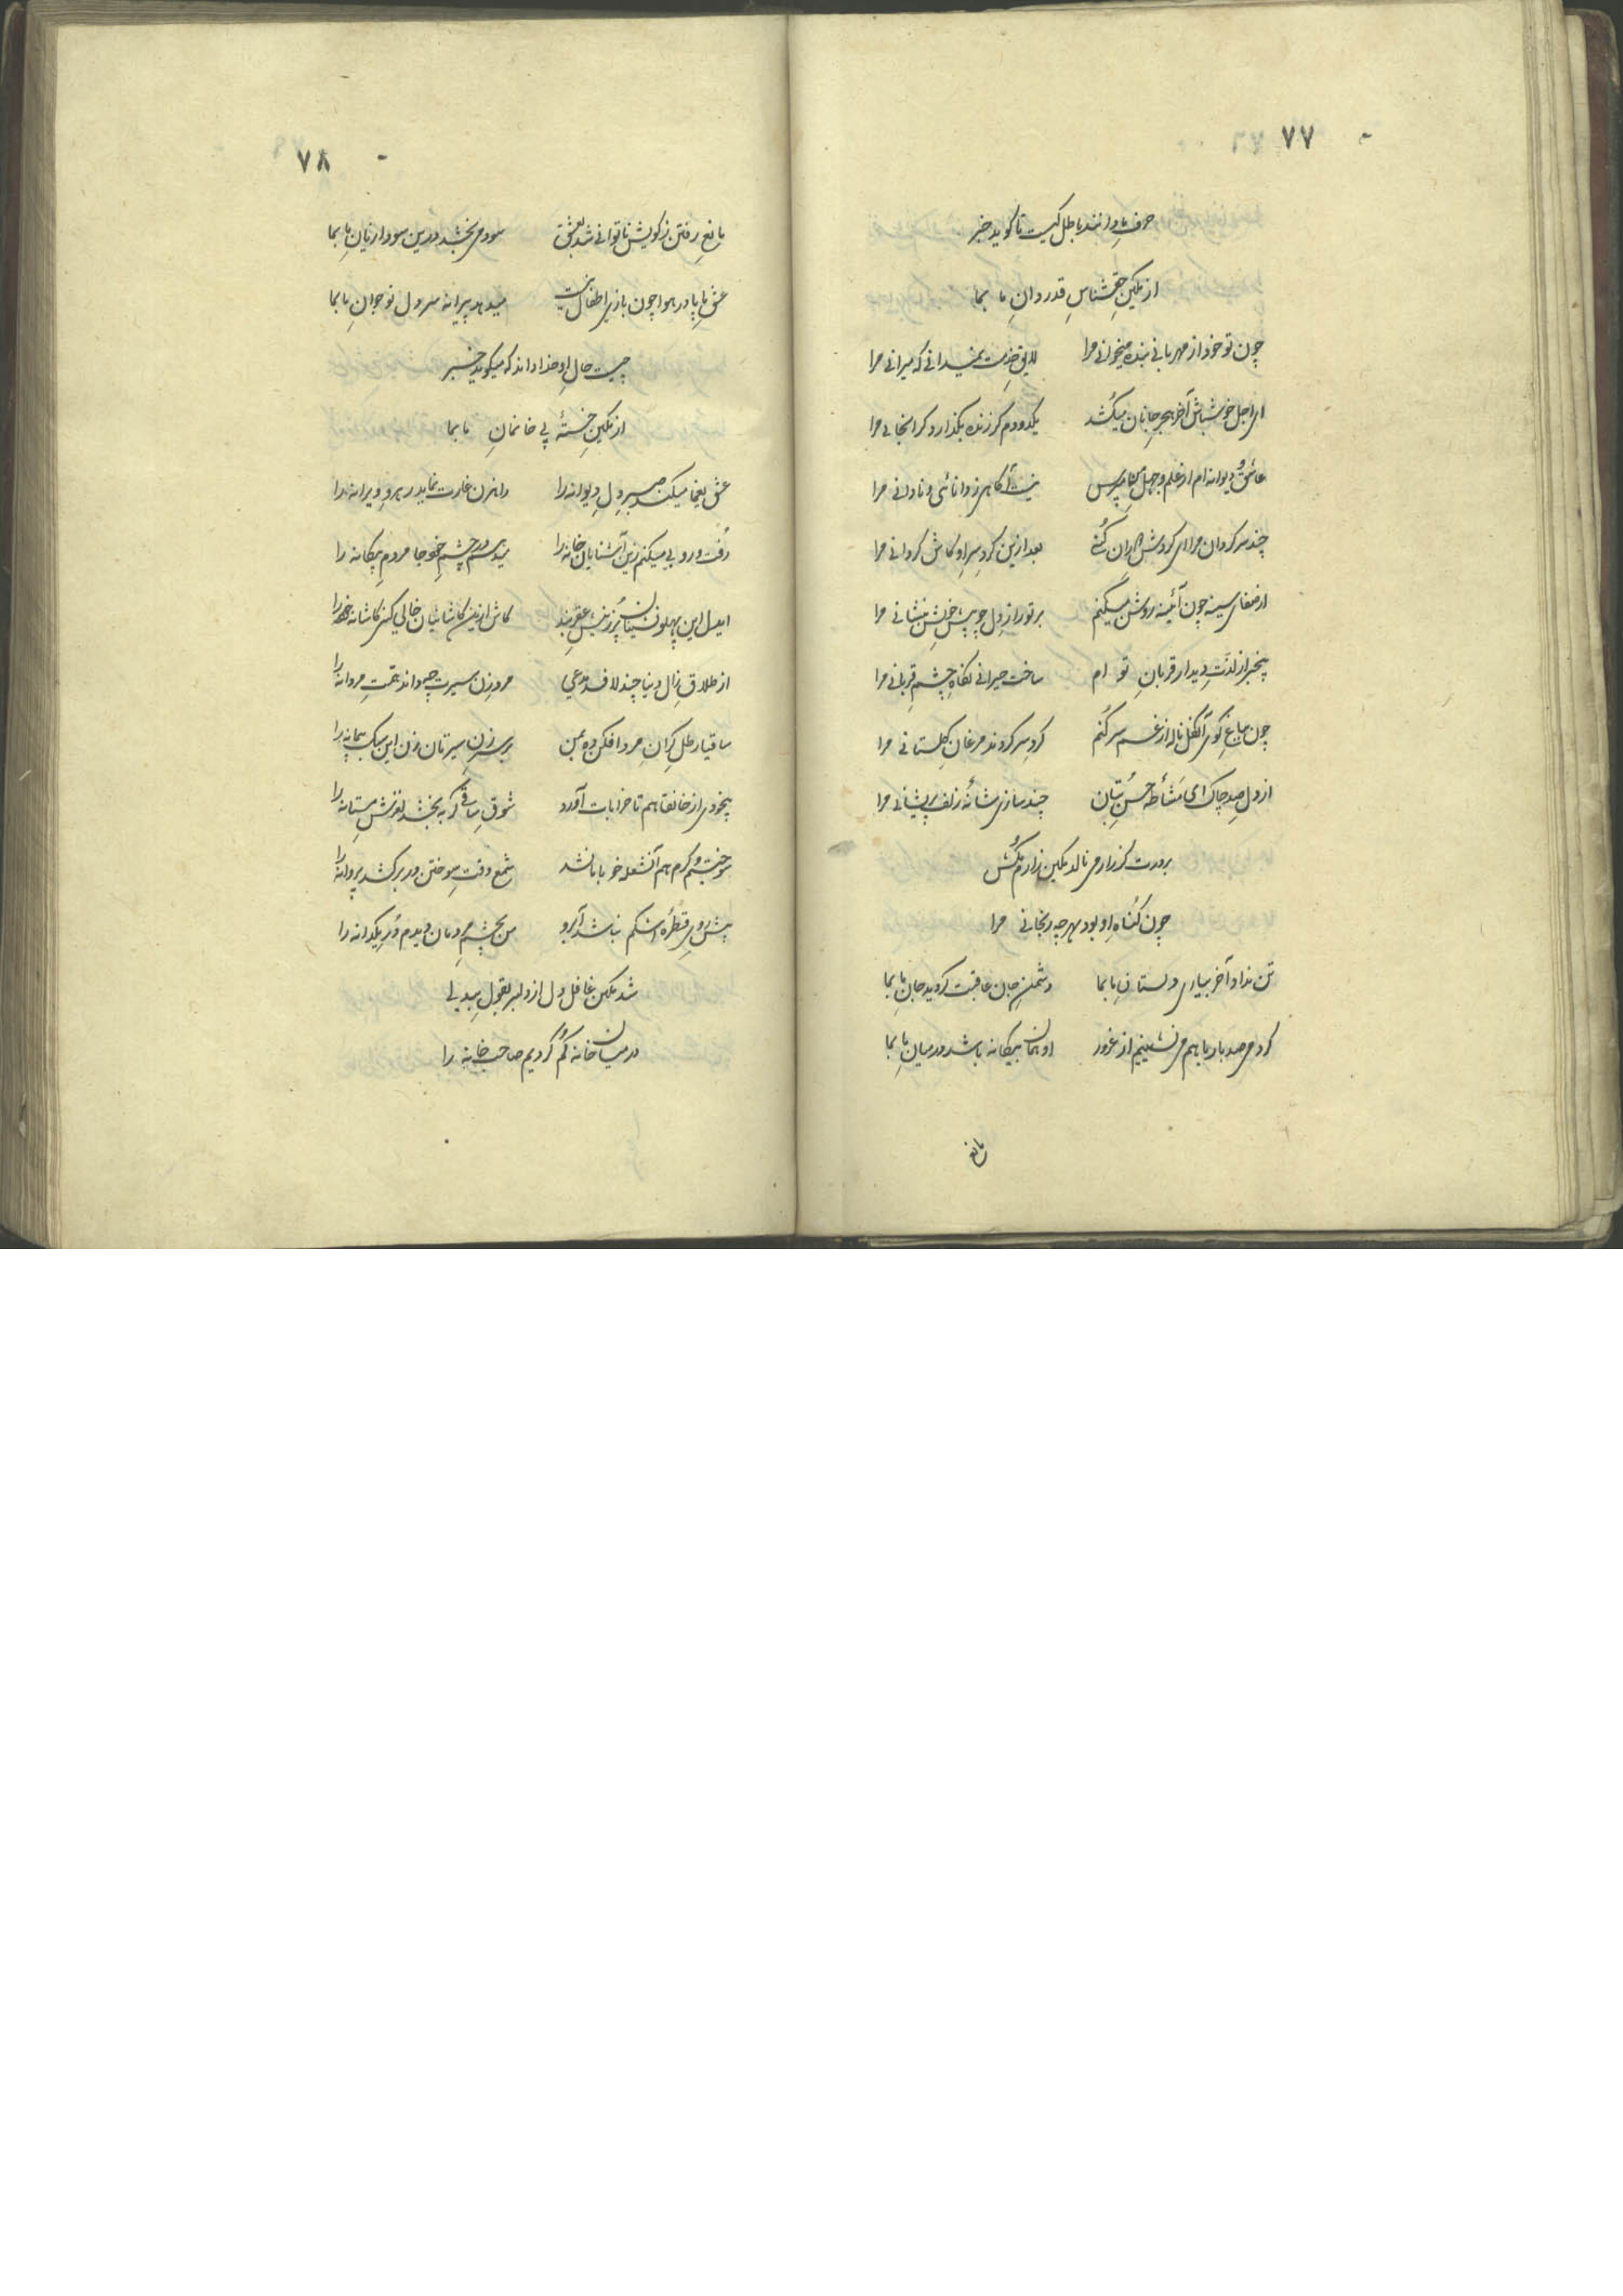 ۷۷
حرف ما دانند باطل کیست تا گوید خبر
از مکین حقشناس قدردان ما بما
چون تو خود از مهربانی بنده میخوانی مرا لایق خدمت نمیدانی که میرانی مرا
ای اجل خوش باش آخر هجر جانان میکشد یکدو دم گر زنده بگذارد گرانجانی مرا
عاشق و دیوانه ام از علم و جهل من مپرس نیست آگاهی ز دانائی و نادانی مرا
چند سرگردان مرا ای گردش دوران کنی بعد ازین گرد سر او کاش گردانی مرا
از صفای سینه چون آئینه روشن میکنم پرتو راز دل چو پیش خویش بنشانی مرا
بیخبر از لذت دیدار قربان تو ام ساخت حیرانی نگاه چشم قربانی مرا
چون بباغ کوی آن گل ناله از غم سر کنم گرد سر گردند مرغان گلستانی مرا
از دل صد چاک ای مشاطه حسن بتان چند سازی شانه زلف پریشانی مرا
بر درت گر زار می نالد مکین زارم مکش
چون گناه او بود بهر چه رنجانی مرا
تن نداد آخر بیاری دلستان ما بما دشمن جان عاقبت گردید جان ما بما
گردمی صد بار با هم می نشینیم از غرور او همان بیگانه باشد در میان ما بما
مانع
۷۸
مانع رفتن ز کویش ناتوانی شد بعشق سود می بخشد درین سودا زیان ما بما
عشق ما پا در هوا چون بازی اطفال نیست میدهد پیرانه سر دل نوجوان ما بما
چیست حال او خدا داند که میگوید خبر
از مکین خسته بی خانمان ما بما
عشق یغما میکند صبر دل دیوانه را راهزن غارت نماید رهرو ویرانه را
رفت و روبی میکنم زین آشنایان خانه را میدهم در چشم خود جا مردم بیگانه را
ایدل این پهلونشینان پر ز نیش عقربند کاش ازین کاشانیان خالی کنی کاشانه را
از طلاق زال دنیا چند لافد مدعی مرد زن سیرت چه داند همت مردانه را
ساقیا رطل گران مرد افکن ده بمن بر سر زن سیرتان زن این سبک پیمانه را
بیخودی از خانقاهم تا خرابات آورد شوق ساقی گر به بخشد لغزش مستانه را
سوختیم و گرم هم آن شعله خو با ما نشد شمع وقت سوختن در بر کشد پروانه را
پیش روی قطره اشکم نباشد آبرو من بچشم مردمان دیدم در یکدانه را
شد مکین غافل دل از دلبر بقول بیدلی
در میان خانه گم کردیم صاحب خانه را